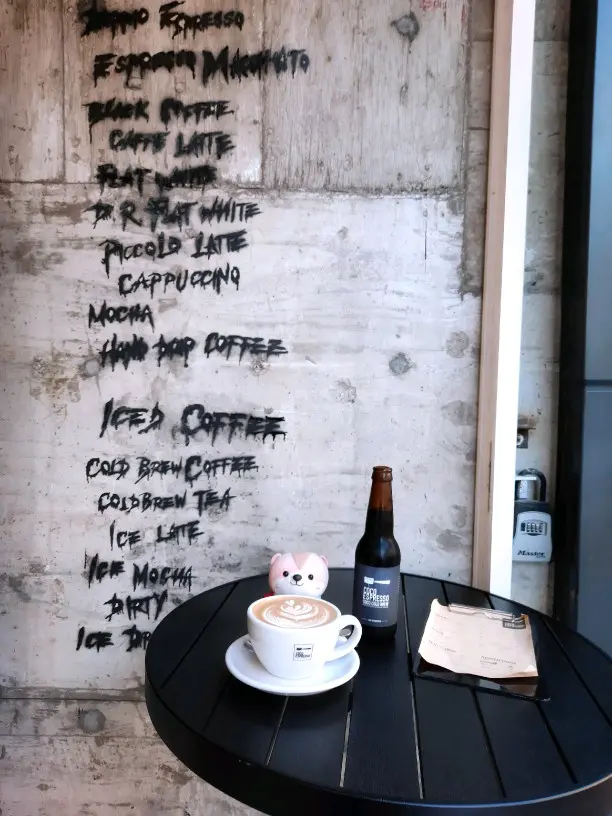 Espresso
Espresso Macchiato
Black Coffee
Caffe Latte
Flat White
Flat White
Piccolo Latte
Cappuccino
Mocha
Hand Drip Coffee
Iced Coffee
Cold Brew Coffee
Cold Brew Tea
Ice Latte
Ice Mocha
Dirty
Ice
COCO
ESPRESSO
Master